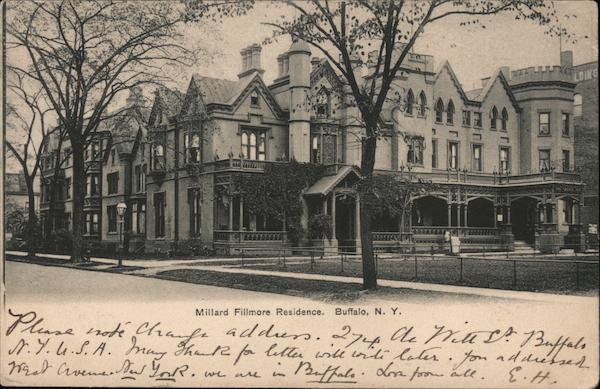 Millard Fillmore Residence. Buffalo, N. Y.
Please note change address. 274 De Witt St. Buffalo
N.Y. U.S.A. Many thanks for letter will write later. you addressed
West Avenue New York. we are in Buffalo. Love from all. E.H.